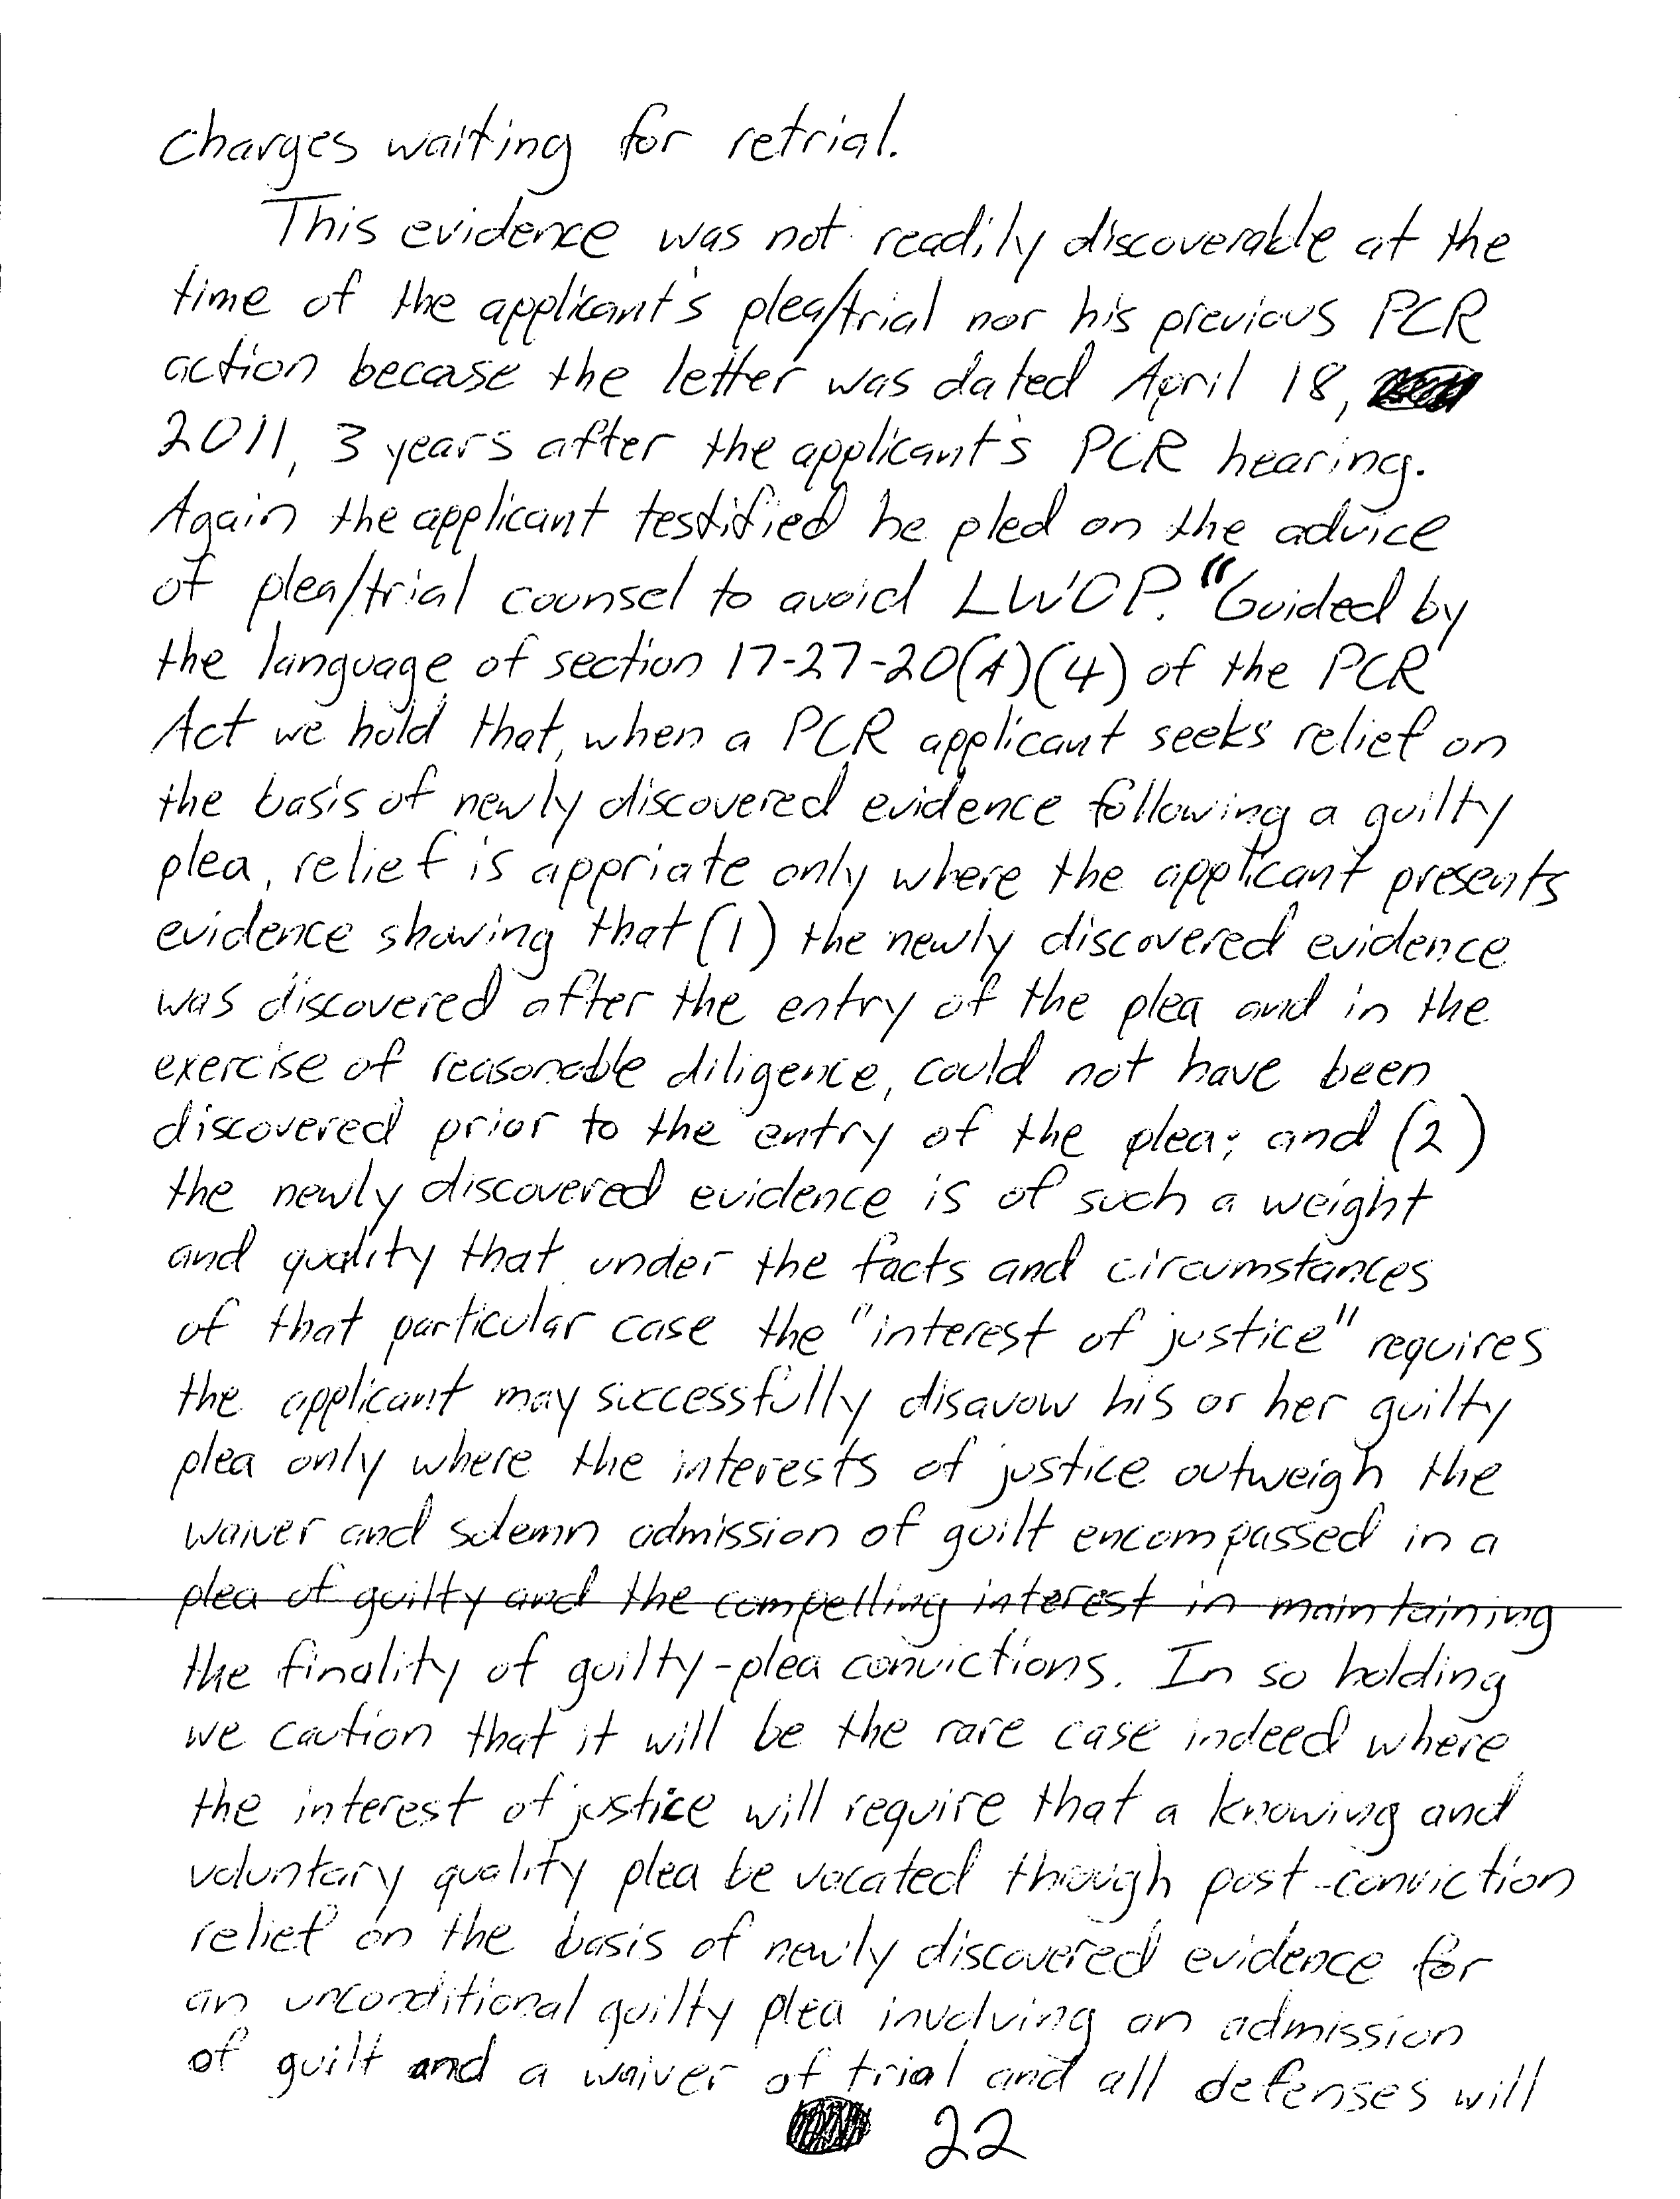 charges waiting for retrial.
This evidence was not readily discoverable at the
time of the applicant's plea/trial nor his previous PCR
action because the letter was dated April 18,
2011, 3 years after the applicant's PCR hearing.
Again the applicant testified he pled on the advice
of plea/trial counsel to avoid LWOP. "Guided by
the language of section 17-27-20(A)(4) of the PCR
Act we hold that, when a PCR applicant seeks relief on
the basis of newly discovered evidence following a guilty
plea, relief is appriate only where the applicant presents
evidence showing that (1) the newly discovered evidence
was discovered after the entry of the plea and in the
exercise of reasonable diligence, could not have been
discovered prior to the entry of the plea; and (2)
the newly discovered evidence is of such a weight
and quality that under the facts and circumstances
of that particular case the "interest of justice" requires
the applicant may successfully disavow his or her guilty
plea only where the interests of justice outweigh the
waiver and solemn admission of guilt encompassed in a
plea of guilty and the compelling interest in maintaining
the finality of guilty-plea convictions. In so holding
we caution that it will be the rare case indeed where
the interest of justice will require that a knowing and
voluntary quality plea be vacated through post-conviction
relief on the basis of newly discovered evidence for
an unconditional guilty plea involving an admission
of guilt and a waiver of trial and all defenses will
22